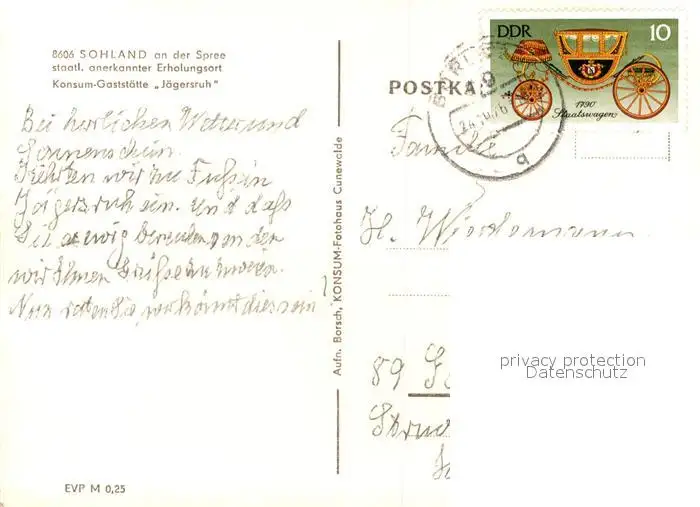 8606 SOHLAND an der Spree
staatl. anerkannter Erholungsort
Konsum-Gaststätte „Jägersruh"
Bei herrlichen Wetter und
Sonnenschein
wir zu Fuß in
Jägersruh ein. Und daß
Sie ewig an den
wir Ihnen Grüße
Nun raten Sie, wer könnt dies sein
?
EVP M 0,25
Aufn. Borsch, KONSUM-Fotohaus Cunewalde
POSTKA
DDR
10
1790
Staatswagen
9
q
Familie
H. Wiedemann
89
privacy protection
Datenschutz